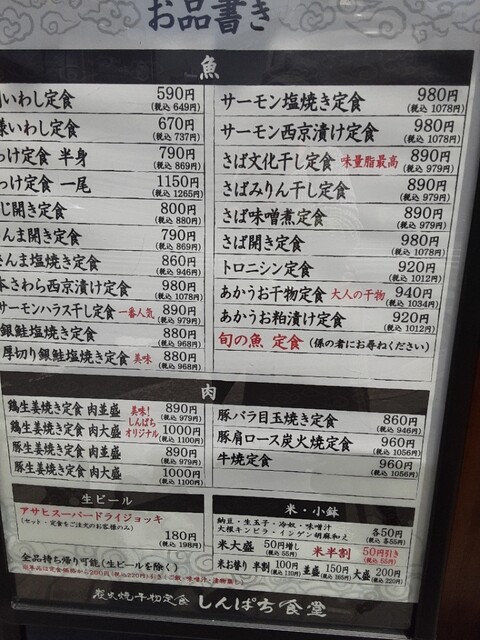 お品書き
魚
いわし定食 590円
(税込 649円)
いわし定食 670円
(税込 737円)
っけ定食 半身 790円
(税込 869円)
っけ定食 一尾 1150円
(税込 1265円)
じ開き定食 800円
(税込 880円)
んま開き定食 790円
(税込 869円)
んま塩焼き定食 860円
(税込 946円)
さわら西京漬け定食 980円
(税込 1078円)
サーモンハラス干し定食 一番人気 890円
(税込 979円)
銀鮭塩焼き定食 880円
(税込 968円)
厚切り銀鮭塩焼き定食 美味 880円
(税込 968円)
サーモン塩焼き定食 980円
(税込 1078円)
サーモン西京漬け定食 980円
(税込 1078円)
さば文化干し定食 味量脂最高 890円
(税込 979円)
さばみりん干し定食 890円
(税込 979円)
さば味噌煮定食 890円
(税込 979円)
さば開き定食 980円
(税込 1078円)
トロニシン定食 920円
(税込 1012円)
あかうお干物定食 大人の干物 940円
(税込 1034円)
あかうお粕漬け定食 920円
(税込 1012円)
旬の魚 定食 (係の者にお尋ねください)
肉
鶏生姜焼き定食 肉並盛 美味! 890円
(税込 979円)
鶏生姜焼き定食 肉大盛 しんぱち オリジナル 1000円
(税込 1100円)
豚生姜焼き定食 肉並盛 890円
(税込 979円)
豚生姜焼き定食 肉大盛 1000円
(税込 1100円)
豚バラ目玉焼き定食 860円
(税込 946円)
豚肩ロース炭火焼定食 960円
(税込 1056円)
牛焼定食 960円
(税込 1056円)
生ビール
アサヒスーパードライジョッキ
(セット・定食をご注文のお客様のみ)
180円
(税込 198円)
全品持ち帰り可能(生ビールを除く)
※単品は定食価格から200円(税込220円)引き(ご飯・味噌汁・漬物無し)
米・小鉢
納豆・生玉子・冷奴・味噌汁
大根キンピラ・インゲン胡麻和え 各50円
(税込 各55円)
米大盛 50円増し
(税込 55円)
米半割 50円引き
(税込 55円)
米お替り 半割 100円
(税込 110円) 並盛 150円
(税込 165円) 大盛 200円
(税込 220円)
炭火焼干物定食 しんぱち食堂